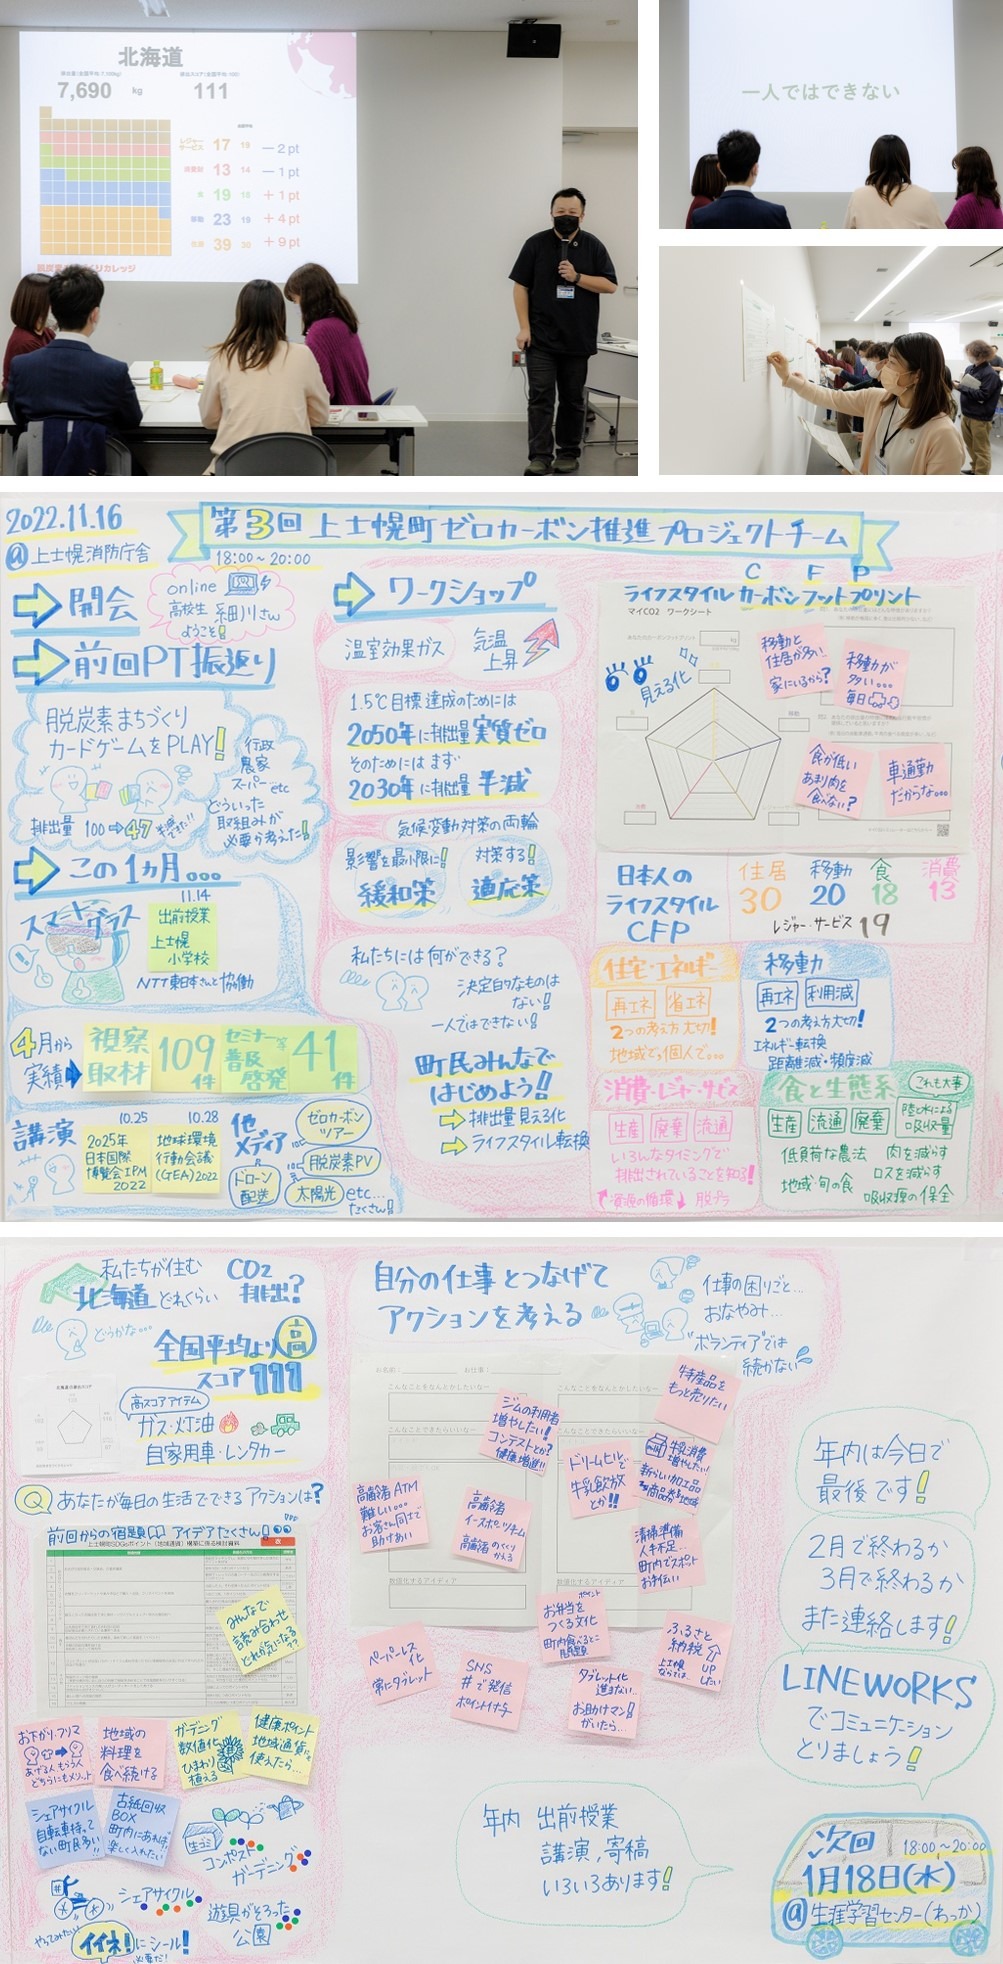 北海道
7,690 kg
111
レジャー・サービス 17 19 −2 pt
消費財 13 14 −1 pt
食 19 18 +1 pt
移動 23 19 +4 pt
住居 39 30 +9 pt
一人ではできない
2022.11.16
@上士幌消防庁舎
第3回 上士幌町ゼロカーボン推進プロジェクトチーム
18:00~20:00
開会
online
高校生 細川さん
ようこそ!
前回PT振返り
脱炭素まちづくり
カードゲームをPLAY!
排出量 100→47 半減できた!!
行政
農家
スーパー etc
どういった
取組みが
必要か考えた!
この1ヵ月...
スマートグラス
11.14
出前授業
上士幌
小学校
NTT東日本さんと協働
4月から
実績
視察
取材 109件
セミナー等
普及
啓発 41件
講演
10.25
2025年
日本国際
博覧会IPM
2022
10.28
地球環境
行動会議
(GEA)2022
他
メディア
ゼロカーボン
ツアー
脱炭素PV
ドローン
配送
太陽光
etc...
たくさん!
ワークショップ
温室効果ガス
気温
上昇
1.5℃目標達成のためには
2050年に排出量実質ゼロ
そのためにはまず
2030年に排出量 半減
気候変動対策の両輪
影響を最小限に!
緩和策
対策する!
適応策
私たちには何ができる?
決定的なものは
ない!
一人ではできない!
町民みんなで
はじめよう!!
排出量見える化
ライフスタイル転換
C F P
ライフスタイル カーボンフットプリント
マイCO2 ワークシート
見える化
移動と
住居が多い
家にいるから?
移動が
多い...
毎日
食が低い
あまり肉を
食べない?
車通勤
だからな...
日本人の
ライフスタイル
CFP
住居
30
移動
20
食
18
消費
13
レジャー・サービス 19
住宅・エネルギー
再エネ 省エネ
2つの考え方 大切!
地域でも個人で...
移動
再エネ 利用減
2つの考え方大切!
エネルギー転換
距離減・頻度減
消費・レジャー・サービス
生産 廃棄 流通
いろんなタイミングで
排出されていることを知る!
資源の循環 脱プラ
食と生態系
これも大事
生産 流通 廃棄
陸と水による
吸収量
低負荷な農法
地域・旬の食
肉を減らす
ロスを減らす
吸収源の保全
私たちが住む
北海道 どれくらい
CO2
排出?
どうかな...
全国平均より高
スコア111
高スコアアイテム
ガス・灯油
自家用車・レンタカー
Q あなたが毎日の生活でできるアクションは?
前回からの宿題 アイデアたくさん!
上士幌町SDGsポイント(地域通貨)構築に係る検討資料
みんなで
読み合わせ
どれが気になる??
お下がりフリマ
あげる人 もらう人
どちらにもメリット
地域の
料理を
食べ続ける
ガーデニング
数値化
ひまわり
植える
健康ポイント
地域通貨に
使えたら...
シェアサイクル
自転車持って
ない町民多い!!
古紙回収
BOX
町内にあれば!!
楽しく入れたい
生ゴミ
コンポスト
ガーデニング
シェアサイクル
やってみたい!
遊具がそろった
公園
イイネ!にシール!
自分の仕事とつなげて
アクションを考える
仕事の困りごと...
おなやみ...
"ボランティア"では
続かない
お名前: お仕事:
こんなことをなんとかしたいなー
こんなことできたらいいなー
数値化するアイディア
ジムの利用者
増やしたい!
コンテストとか?
健康増進!!
特産品を
もっと売りたい
高齢者ATM
難しい...
お客さん同士で
助けあい
高齢者
イースポーツチーム
ドリームヒルで
牛乳飲放
とか!!
牛乳消費
増やしたい!
新しい加工品
清掃準備
人手不足...
町内でスポット
お手伝い
お弁当を
つくる文化
ポイント
ペーパーレス
化
常にタブレット
SNS
#で発信
ポイント付与
タブレット化
進まない...
お助けマン!
がいたら...
ふるさと
納税
UP
したい
年内は今日で
最後です!
2月で終わるか
3月で終わるか
また連絡します!
LINEWORKS
でコミュニケーション
とりましょう!
年内 出前授業
講演,寄稿
いろいろあります!
次回 18:00~20:00
1月18日(水)
@生涯学習センター(わっか)